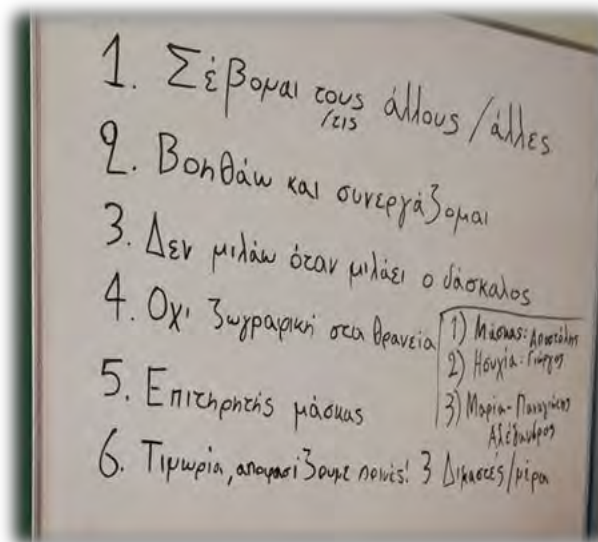 1. Σέβομαι τους άλλους / άλλες
/τις
2. Βοηθάω και συνεργάζομαι
3. Δεν μιλάω όταν μιλάει ο δάσκαλος
4. Οχι ζωγραφική στα θρανεία
5. Επιτηρητής μάσκας
6. Τιμωρία, αποφασίζουμε ποινές! 3 Δικαστές/μέρα
1) Μάσκας: Αποστόλης
2) Ησυχία: Γιώργος
3) Μαρία-Παναγιώτης
Αλέξανδρος